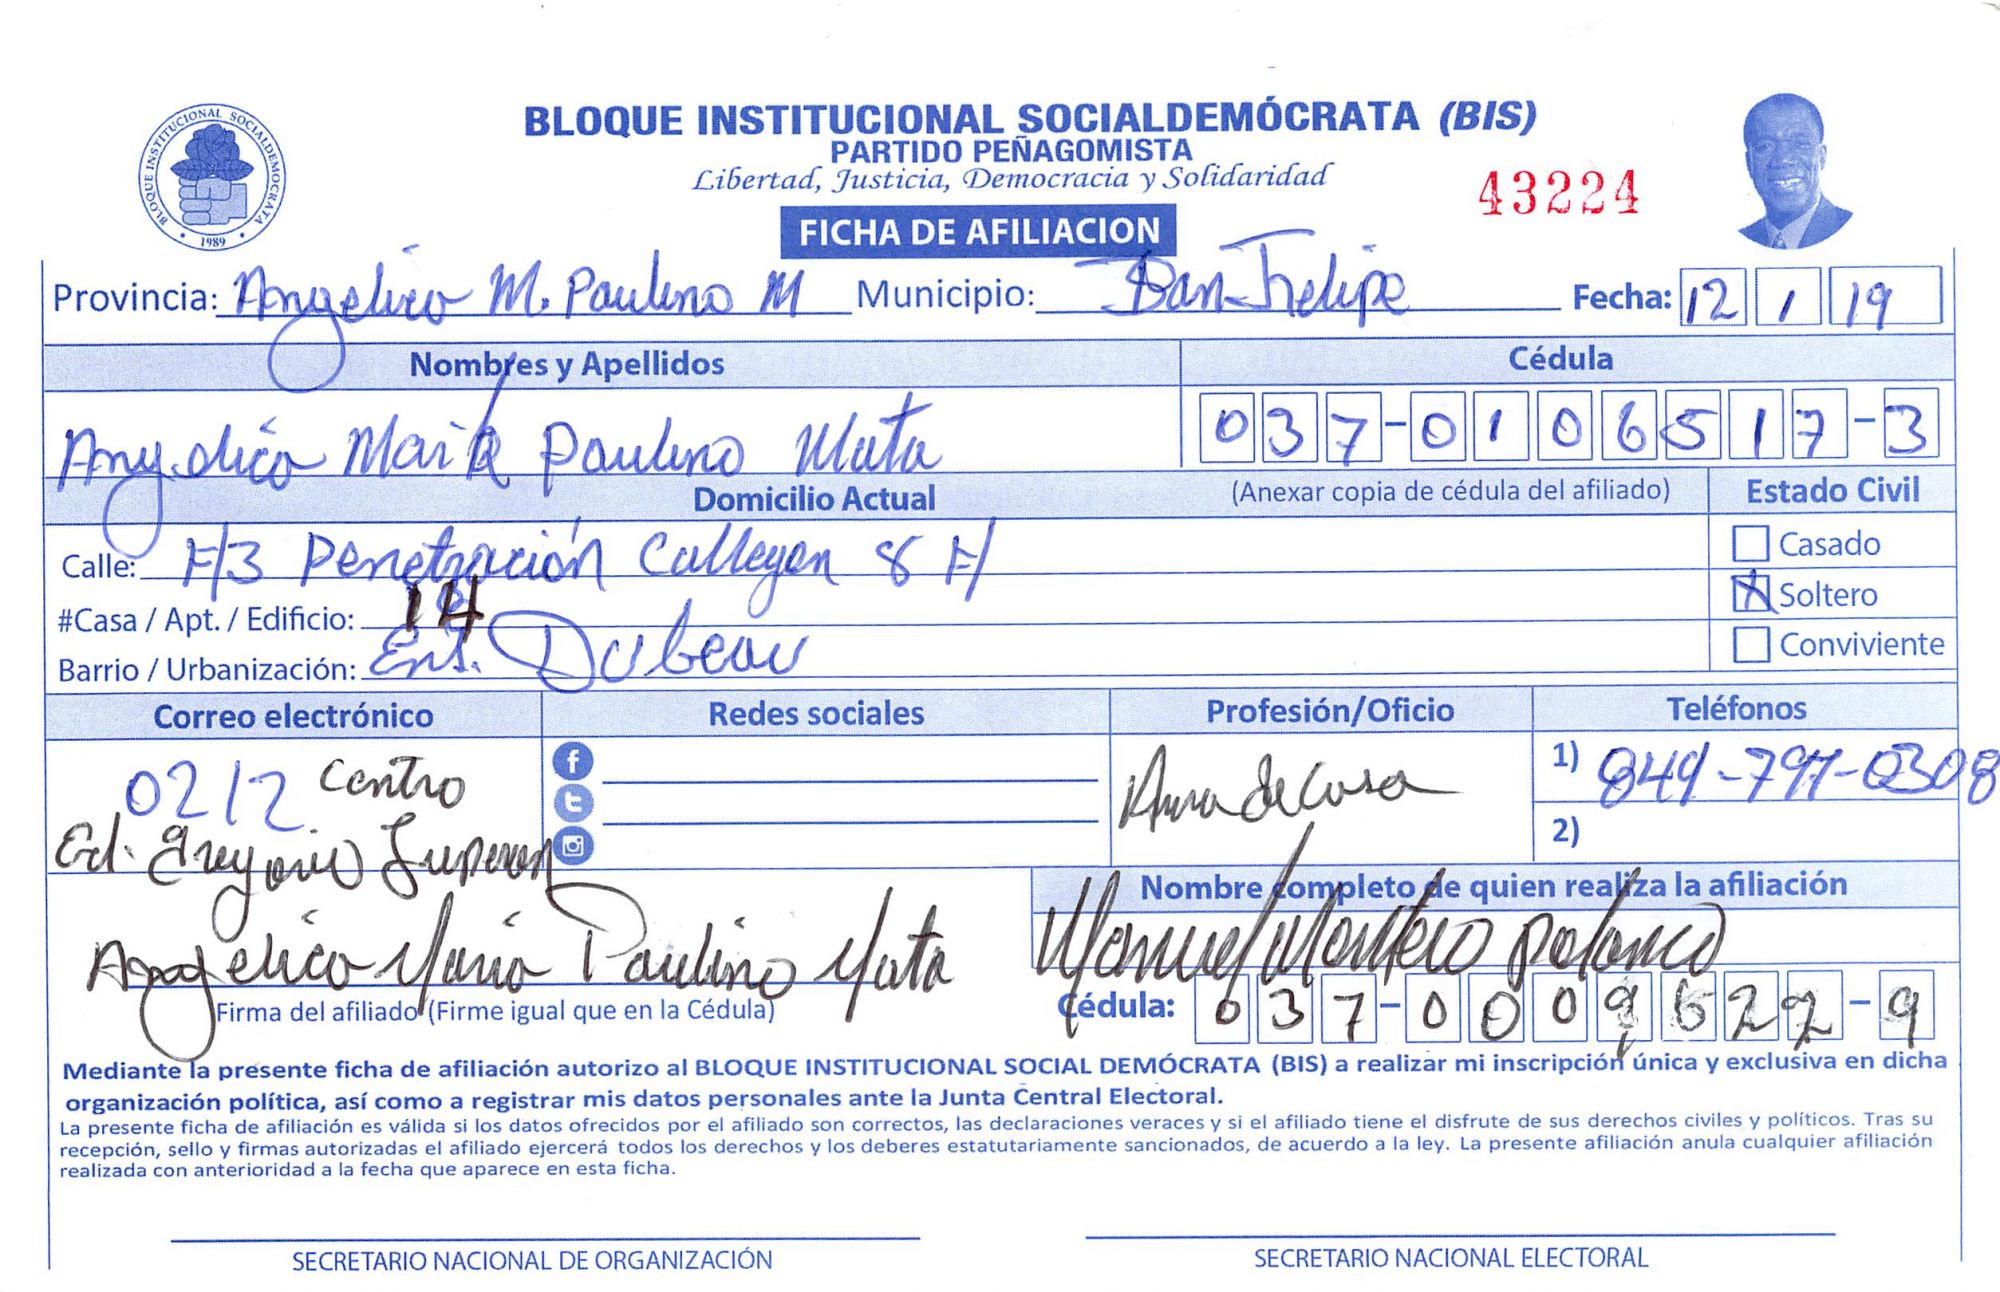 BLOQUE INSTITUCIONAL SOCIALDEMÓCRATA (BIS)
PARTIDO PEÑAGOMISTA
Libertad, Justicia, Democracia y Solidaridad
43224
BLOQUE INSTITUCIONAL SOCIALDEMOCRATA
1989
FICHA DE AFILIACION
Provincia: Angelica M. Paulino M Municipio: San Felipe Fecha: 12 1 19
Nombres y Apellidos Cédula
Angelica Maria Paulino Mata 037-0106517-3
Domicilio Actual (Anexar copia de cédula del afiliado) Estado Civil
Calle: F/3 Penetración Callejon 8 F/ Casado
#Casa / Apt. / Edificio: 14 X Soltero
Barrio / Urbanización: Ens. Dubeau Conviviente
Correo electrónico Redes sociales Profesión/Oficio Teléfonos
0212 Centro Ama de Casa 1) 849-797-0308
Ed. Gregorio Luperon 2)
Nombre completo de quien realiza la afiliación
Angelica Maria Paulino Mata Manuel Montero Polanco
Firma del afiliado (Firme igual que en la Cédula) Cédula: 037-0009622-9
Mediante la presente ficha de afiliación autorizo al BLOQUE INSTITUCIONAL SOCIAL DEMÓCRATA (BIS) a realizar mi inscripción única y exclusiva en dicha
organización política, así como a registrar mis datos personales ante la Junta Central Electoral.
La presente ficha de afiliación es válida si los datos ofrecidos por el afiliado son correctos, las declaraciones veraces y si el afiliado tiene el disfrute de sus derechos civiles y políticos. Tras su
recepción, sello y firmas autorizadas el afiliado ejercerá todos los derechos y los deberes estatutariamente sancionados, de acuerdo a la ley. La presente afiliación anula cualquier afiliación
realizada con anterioridad a la fecha que aparece en esta ficha.
SECRETARIO NACIONAL DE ORGANIZACIÓN SECRETARIO NACIONAL ELECTORAL